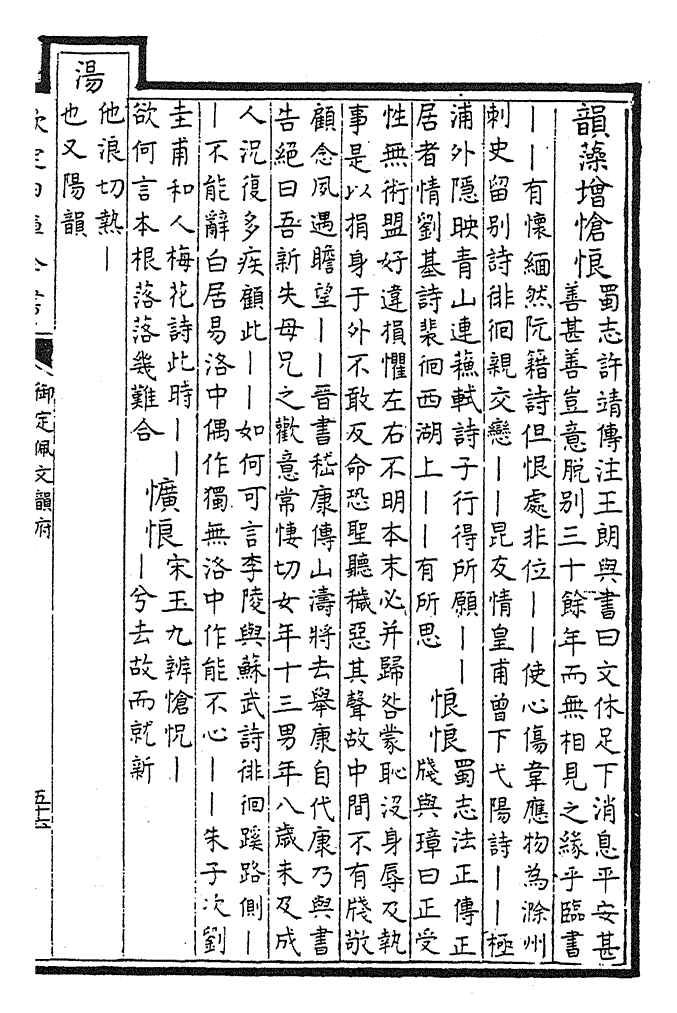 韻藻增愴悢
蜀志許靖傳注王朗與書曰文休足下消息平安甚
善甚善豈意脫別三十餘年而無相見之緣乎臨書
丨丨有懷緬然阮籍詩但恨處非位丨丨使心傷韋應物為滁州
刺史留別詩徘徊親交戀丨丨昆友情皇甫曾下弋陽詩丨丨極
浦外隱映青山連蘓軾詩子行得所願丨丨
居者情劉基詩裴徊西湖上丨丨有所思
悢悢
蜀志法正傳正
牋與璋曰正受
性無術盟好違損懼左右不明本末必并歸咎蒙恥沒身辱及執
事是以捐身于外不敢反命恐聖聽穢惡其聲故中間不有牋敬
顧念夙遇瞻望丨丨晉書嵇康傳山濤將去舉康自代康乃與書
告絕曰吾新失母兄之歡意常悽切女年十三男年八歲未及成
人況復多疾顧此丨丨如何可言李陵與蘇武詩徘徊蹊路側丨
丨不能辭白居易洛中偶作獨無洛中作能不心丨丨朱子次劉
圭甫和人梅花詩此時丨丨
欲何言本根落落幾難合
懭悢
宋玉九辨愴怳丨
丨兮去故而就新
湯
他浪切熱丨
也又陽韻
御定佩文韻府
五十六